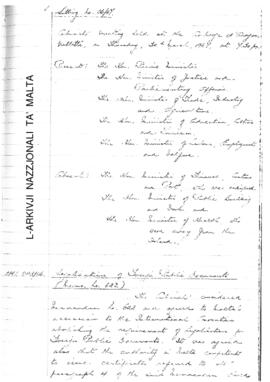 Sitting No. 16/67
Cabinet meeting held at the College of Dragon,
Valletta, on Thursday, 30th March, 1967 at 9.30 a.m.
Present: The Hon. Prime Minister
The Hon. Minister of Justice and
Parliamentary Affairs
The Hon. Minister of Trade, Industry
and Agriculture
The Hon. Minister of Education, Culture
and Tourism
The Hon. Minister of Labour, Employment
and Welfare.
Absent: The Hon. Minister of Finance, Customs
and Port, who was indisposed
The Hon. Minister of Public Building
and Works and
The Hon. Minister of Health who
were away from the
Island.
L-ARKIVJI NAZZJONALI TA' MALTA
Legalisation of Foreign Public Documents
(Memo. No. 882)
The Cabinet considered
Memorandum No. 882 and agreed to Malta's
accession to the International Convention
abolishing the requirement of legalisation for
Foreign Public Documents. It was agreed
also that the authority in Malta competent
to issue certificates referred to in
paragraph 4 of the said Memorandum